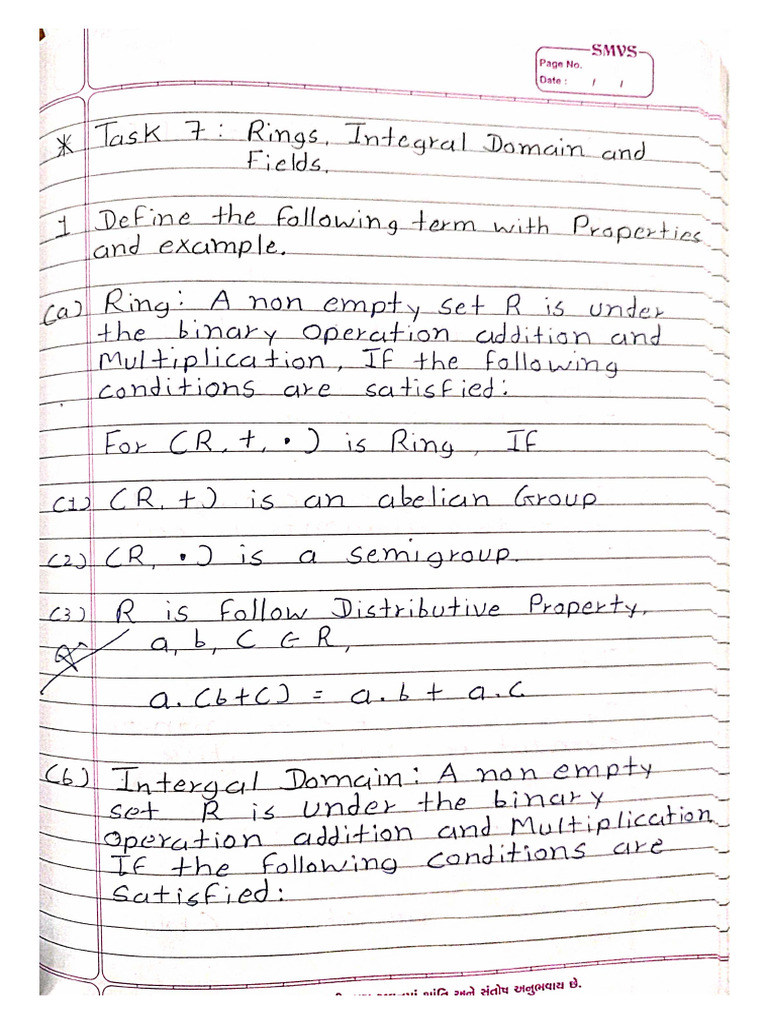 SMVS
Page No.
Date : / /
* Task 7 : Rings, Integral Domain and
Fields.
1 Define the following term with Properties
and example.
(a) Ring : A non empty set R is under
the binary operation addition and
Multiplication, If the following
conditions are satisfied :
For (R, +, •) is Ring, If
(1) (R, +) is an abelian Group
(2) (R, •) is a semigroup.
(3) R is follow Distributive Property,
a, b, c ∈ R,
a.(b+c) = a.b + a.c
(b) Intergal Domain : A non empty
set R is under the binary
operation addition and Multiplication
If the following conditions are
satisfied :
શાંતિ અને સંતોષ અનુભવાય છે.